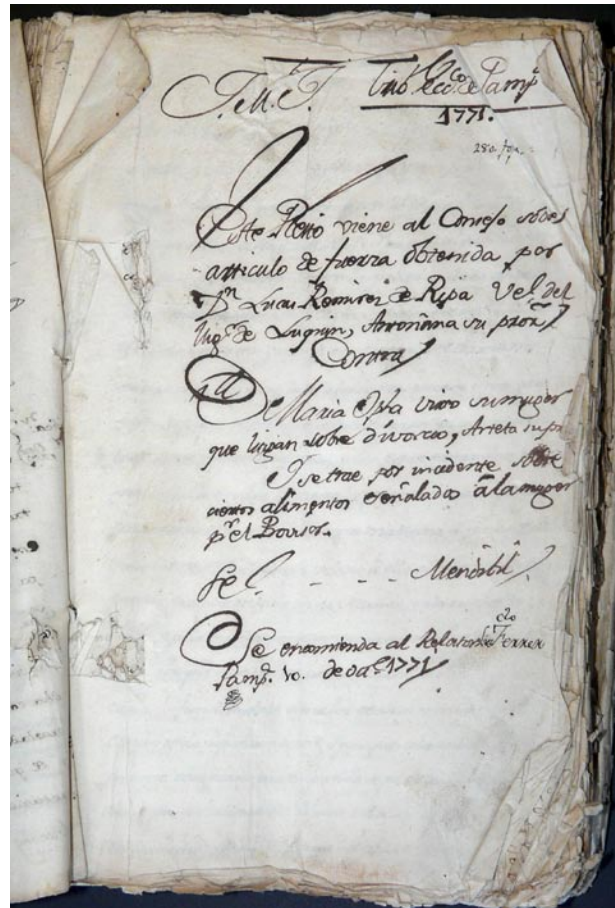 J.M.J. Trib.l Ecco. de Pamp.a
1771.
280. foja.
Este Pleito viene al Consejo sobre
articulo de fuerza obtenida por
Dn. Lucas Remirez de Ripa Ve.o del
lug.r de Luquin, Arroñana su pror.
Contra
Da. Maria Vicio su muger
que litigan sobre divorcio, Arreta su pr.
Y se trae por incidente sobre
ciertos alimentos señalados a la muger
pr. el Provisor.
Se - - - - Mendibil
Se encamienda al Relator Ldo Ferrer
Pamp.a 10. de 1771